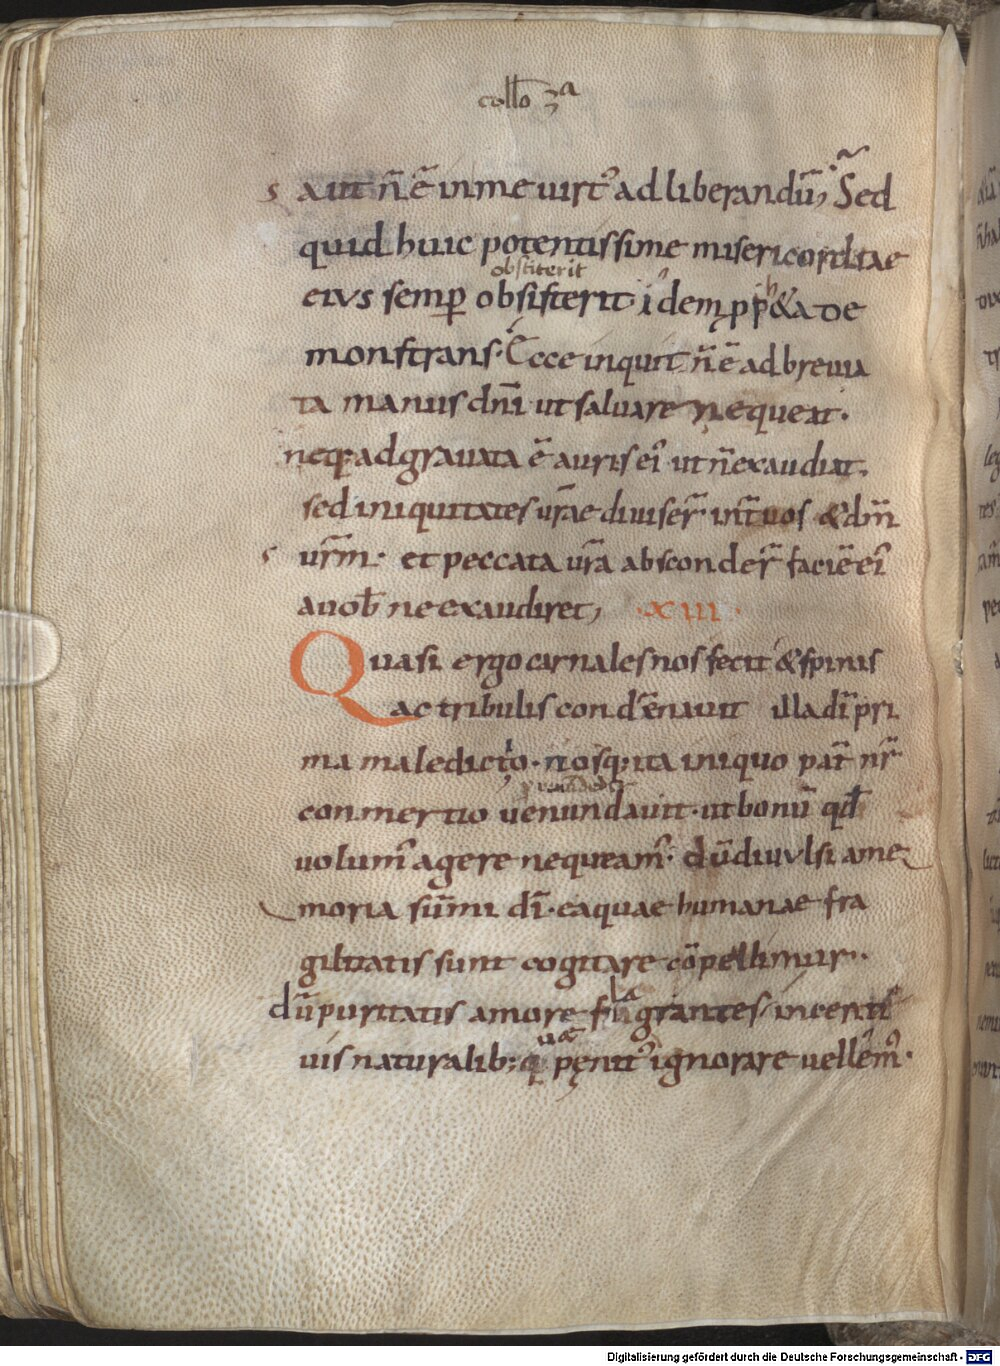 collo 3ª
s aut n̄ ē in me uirt᾽ ad liberandū; Sed
quid huic potentissime misericordiae
obstiterit
eius semp obsisterit idem pph&a de
monstrans· Ecce inquit n̄ ē adbreuia
ta manus dn̄i ut saluare nequeat·
neq; adgrauata ē auris ei᾽ ut n̄ exaudiat.
sed iniquitates ur̄ae diuiser̄ int̄ uos & dm̄
s ur̄m· et peccata ur̄a absconder̄ faciē ei᾽
a uob̄ ne exaudiret; ·xiii·
Quasi ergo carnales nos fecit & spinis
ac tribulis condēnauit illa dī pri
ma maledictio· nosq; ita iniquo pat̄ nr̄
conmertio uenundauit· ut bonū qd̄
uolum̄ agere nequeam̄· dū diuulsi a me
moria sūmi dī· ea quae humanae fra
gilitatis sunt cogitare cōpellimur·
la
dū puritatis amore fragrantes incenti
uis naturalib; quae penit᾽ ignorare uellem᾽·
Digitalisierung gefördert durch die Deutsche Forschungsgemeinschaft - DFG